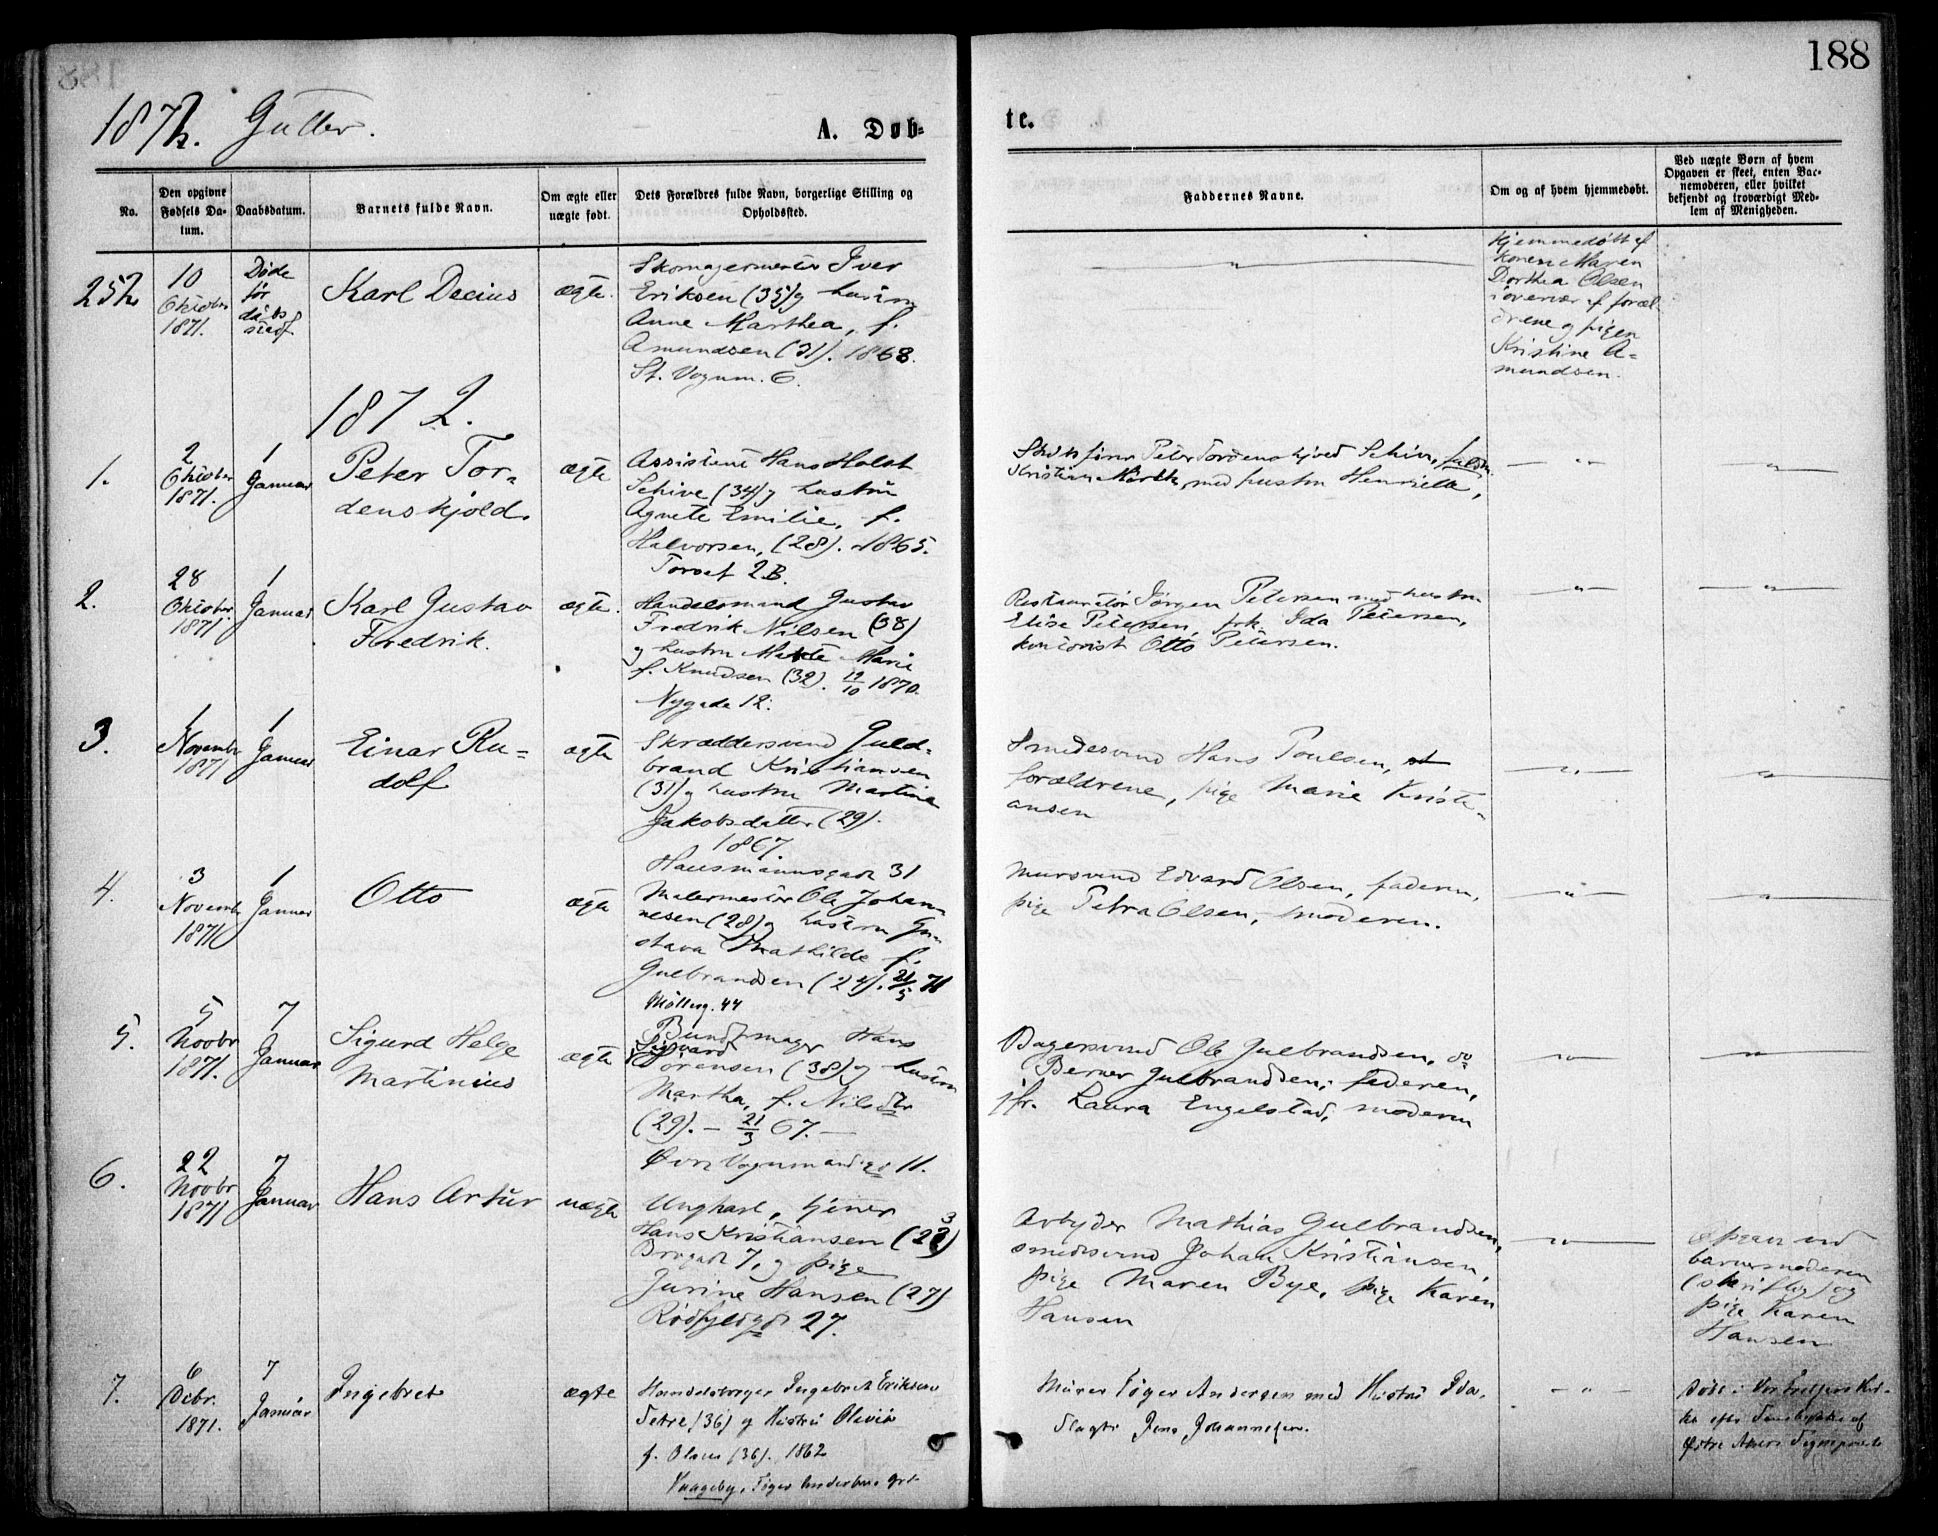 188
1872. Gutter.
A. Døbte.
No.
Den opgivne Fødsels Datum.
Daabsdatum.
Barnets fulde Navn.
Om ægte eller uægte født.
Dets Forældres fulde Navn, borgerlige Stilling og Opholdssted.
Faddernes Navne.
Om og af hvem hjemmedøbt.
Ved uægte Børn af hvem Opgaven er skeet, enten Barnemoderen, eller hvilket bekjendt og troværdigt Medlem af Menigheden.
252
10
Oktober
1871.
Døde
før
daabs
stadf.
Karl Decius
ægte.
Skomagermester Iver
Eriksen (35) og hustru
Anne Marthea, f.
Amundsen (31). 1868.
St. Vognm. 6.
Hjemmedøbt af
konen Maren
Dorthea Olsen
i overvær af foræl-
drene og pigen
Kristine A-
mundsen.
1872.
1.
2
Oktober
1871.
1
Januar
Peter Tor-
denskjold.
ægte
Assistent Hans Holst
Schive (34) og hustru
Agnete Emilie, f.
Halvorsen, (28). 1865.
Torvet 2B.
Peter Tordenskjold Schive,
Kristian med hustru Henriette,
2.
28
Oktober
1871
1
Januar
Karl Gustav
Fredrik.
ægte.
Handelsmand Gustav
Fredrik Nilsen (38)
og hustru Marie
f. Knudsen (32). 12/10 1870.
Nygade 12.
Restauratør Jørgen Petersen med hustru
Elise Petersen, frk. Ida Petersen,
kontorist Otto Petersen.
3.
1
Novembr
1871
1
Januar
Einar Ru-
dolf
ægte
Skræddersvend Guld-
brand Kristiansen
(31) og hustru Martina
Jakobsdatter (29).
1867.
Hausmannsgade 31
Smedesvend Hans Poulsen,
forældrene, pige Marie Kristi-
ansen
4.
3
Novemb
1871
1
Januar
Otto
ægte
Malermester Ole Johan-
nesen (28) og hustru Gu-
stava Mathilde f.
Gulbrandsen (24). 21/5 71
Møllerg. 44
Mursvend Edvard Olsen, faderen,
pige Petra Olsen, moderen.
5.
5
Novbr
1871.
7
Januar
Sigurd Helge
Martinius
ægte
Bundtmager Hans
Sigvard
Sørensen (38) og hustru
Martha, f. Nilsdtr
(29). – 21/3 67. –
Øvre Vognmandsgd 11.
Bagersvend Ole Gulbrandsen, do
Berner Gulbrandsen, faderen,
jfr. Laura Engelstad, moderen
6.
22
Novbr
1871
7
Januar
Hans Artur
uægte
Ungkarl, tjener
Hans Kristiansen (23)
Brogade 7, og pige
Jurine Hansen (27)
Rødfyldgd 27.
Arbyder Mathias Gulbrandsen,
smedesvend Johan Kristiansen,
pige Maren Bye, pige Karen
Hansen
Opgav. ved
barnemoderen
(skriftlig) og
pige Karen
Hansen
7.
6
Debr.
1871.
7
Januar
Ingebret
ægte
Handelsborger Ingebret Eriksen
Setre (36) og Hustru Olivia
f. Olsen (36). 1862
Vaageby, Tøger Andersens Grd.
Murer Tøger Andersen med Hustru Ida.
Slagter Jens Johannesen.
Døbt i Vor Frelsers Kir-
ke efter Samtykke af
Østre Akers Sogneprest